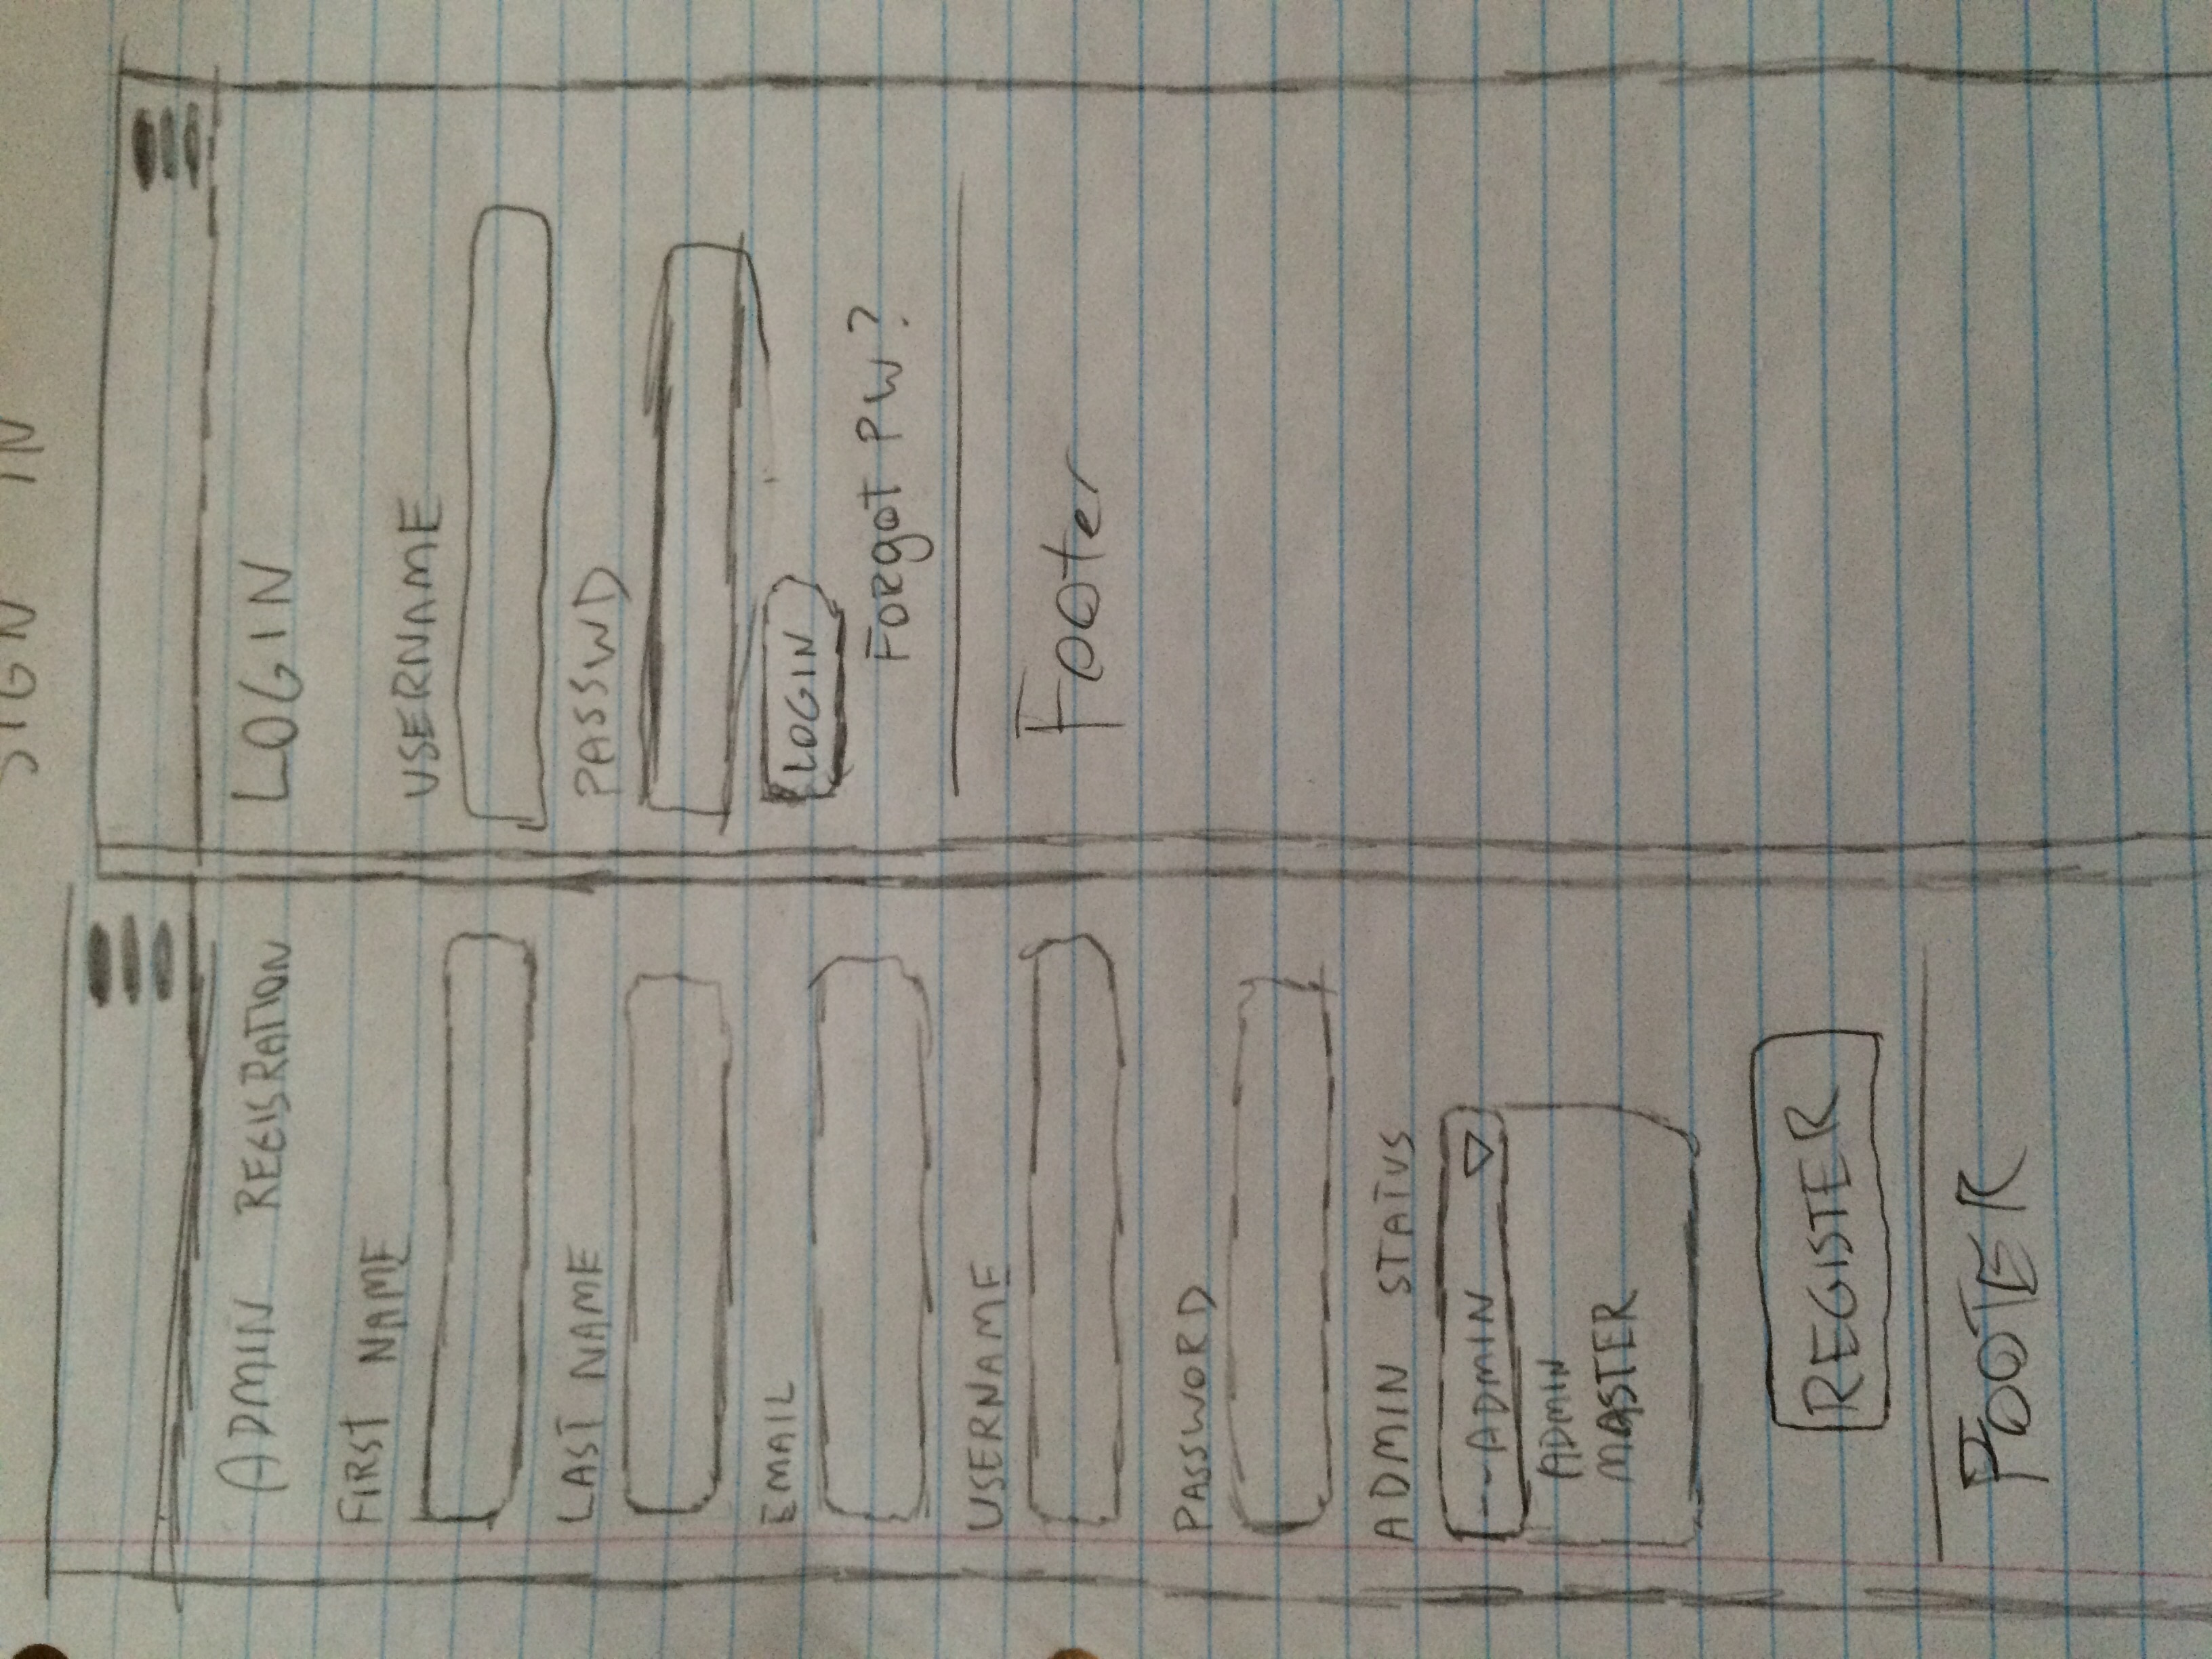 SIGN IN
ADMIN REGISRATION
FIRST NAME
LAST NAME
EMAIL
USERNAME
PASSWORD
ADMIN STATUS
--ADMIN
ADMIN
MASTER
REGISTER
FOOTER
LOGIN
USERNAME
PASSWD
LOGIN
FORgOT PW?
Footer